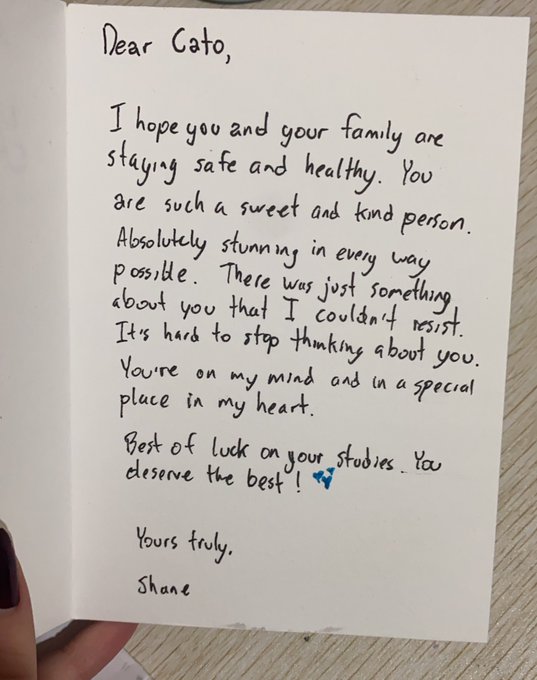 Dear Cato,
I hope you and your family are
staying safe and healthy. You
are such a sweet and kind person.
Absolutely stunning in every way
possible. There was just something
about you that I couldn't resist.
It's hard to stop thinking about you.
You're on my mind and in a special
place in my heart.
Best of luck on your studies. You
deserve the best!
Yours truly,
Shane